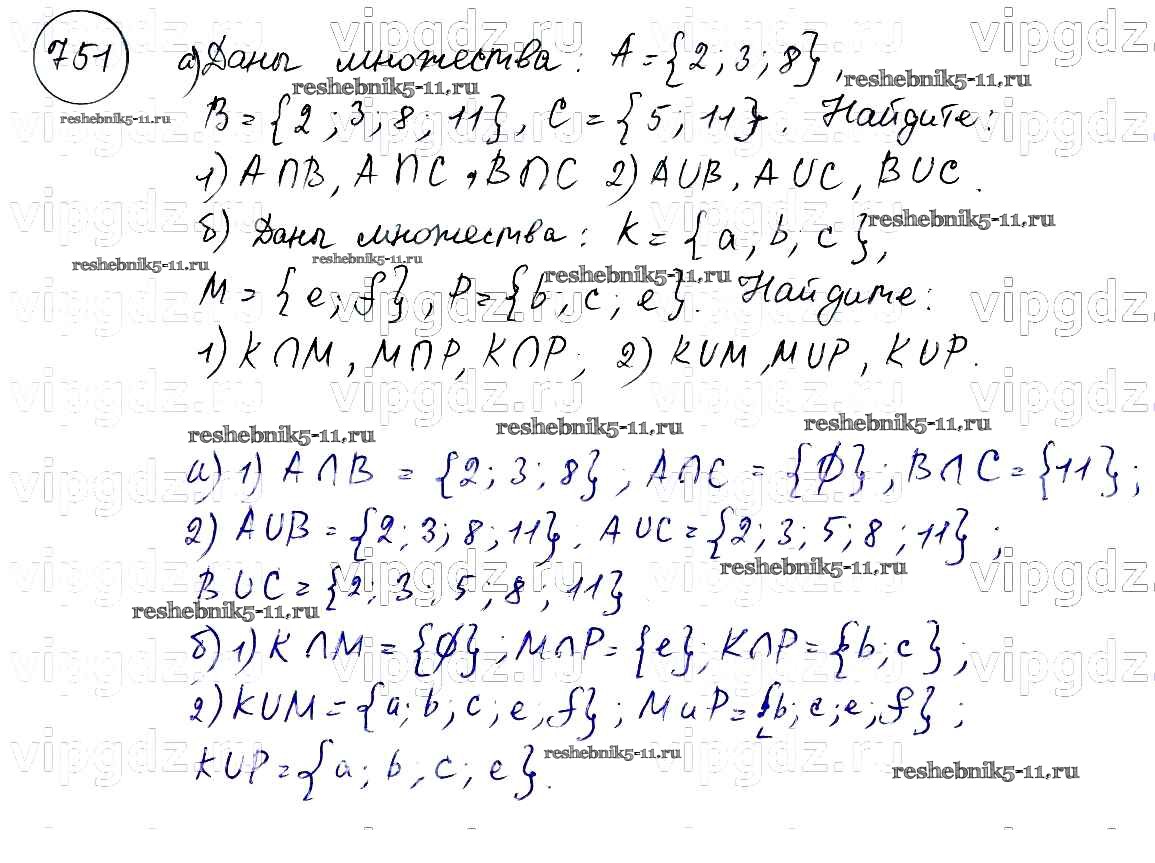 751 а) Даны множества: A = {2; 3; 8},
B = {2; 3; 8; 11}, C = {5; 11}. Найдите:
1) A∩B, A∩C, B∩C 2) A∪B, A∪C, B∪C.
б) Даны множества: K = {a, b, c},
M = {e; f}, P = {b; c; e}. Найдите:
1) K∩M, M∩P, K∩P; 2) K∪M, M∪P, K∪P.
а) 1) A∩B = {2; 3; 8}; A∩C = {∅}; B∩C = {11};
2) A∪B = {2; 3; 8; 11}; A∪C = {2; 3; 5; 8; 11};
B∪C = {2; 3; 5; 8, 11}
б) 1) K∩M = {∅}; M∩P = {e}; K∩P = {b; c};
2) K∪M = {a; b; c; e; f}; M∪P = {b; c; e; f};
K∪P = {a; b; c; e}.
vipgdz.ru
reshebnik5-11.ru